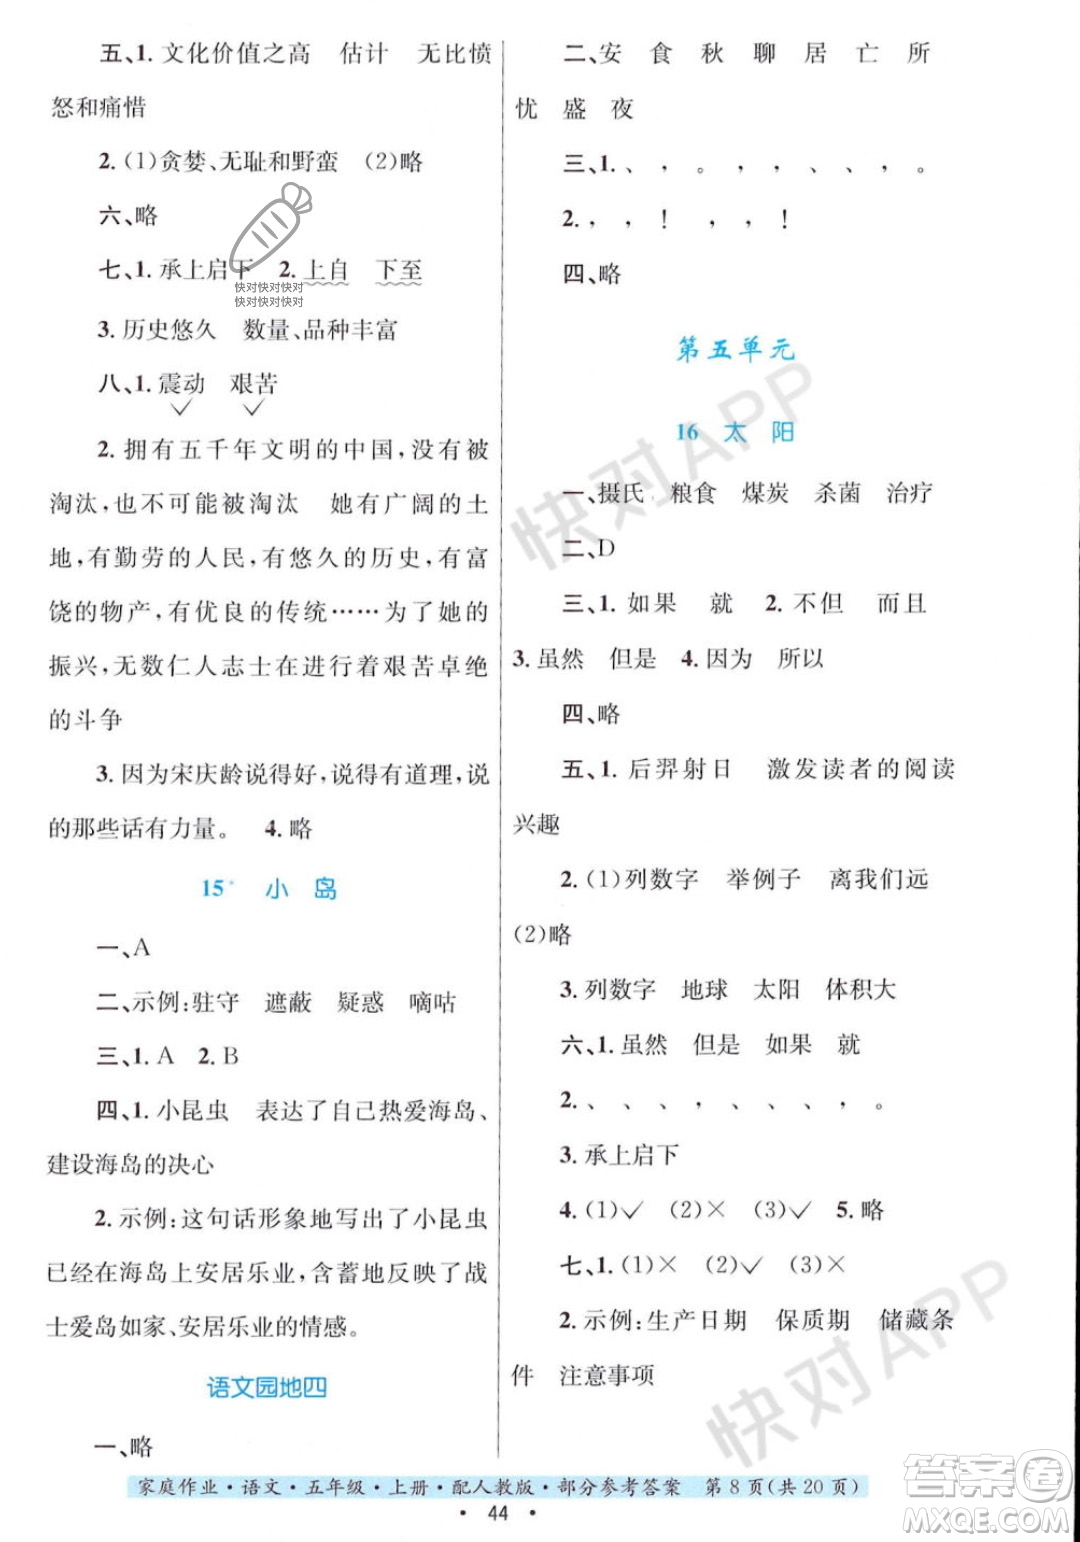 五、1. 文化价值之高　估计　无比愤
怒和痛惜
2. (1)贪婪、无耻和野蛮　(2)略
六、略
七、1. 承上启下　2. 上自　下至
快对快对快对
快对快对快对
3. 历史悠久　数量、品种丰富
八、1. 震动　艰苦
2. 拥有五千年文明的中国，没有被
淘汰，也不可能被淘汰　她有广阔的土
地，有勤劳的人民，有悠久的历史，有富
饶的物产，有优良的传统……为了她的
振兴，无数仁人志士在进行着艰苦卓绝
的斗争
3. 因为宋庆龄说得好，说得有道理，说
的那些话有力量。　4. 略
15* 小　岛
一、A
二、示例：驻守　遮蔽　疑惑　嘀咕
三、1. A　2. B
四、1. 小昆虫　表达了自己热爱海岛、
建设海岛的决心
2. 示例：这句话形象地写出了小昆虫
已经在海岛上安居乐业，含蓄地反映了战
士爱岛如家、安居乐业的情感。
语文园地四
一、略
二、安　食　秋　聊　居　亡　所
忧　盛　夜
三、1. 、　，　。　，　，　、　、　，　。
2. ，　，　！　，　，　！
四、略
第五单元
16　太　阳
一、摄氏　粮食　煤炭　杀菌　治疗
二、D
三、1. 如果　就　2. 不但　而且
3. 虽然　但是　4. 因为　所以
四、略
五、1. 后羿射日　激发读者的阅读
兴趣
2. (1)列数字　举例子　离我们远
(2)略
3. 列数字　地球　太阳　体积大
六、1. 虽然　但是　如果　就
2. 、　、　、　，　、　、　、　，　。
3. 承上启下
4. (1)✓　(2)×　(3)✓　5. 略
七、1. (1)×　(2)✓　(3)×
2. 示例：生产日期　保质期　储藏条
件　注意事项
快对APP
快对APP
家庭作业·语文·五年级·上册·配人教版·部分参考答案　第8页(共20页)
· 44 ·
答案圈
MXQE.COM